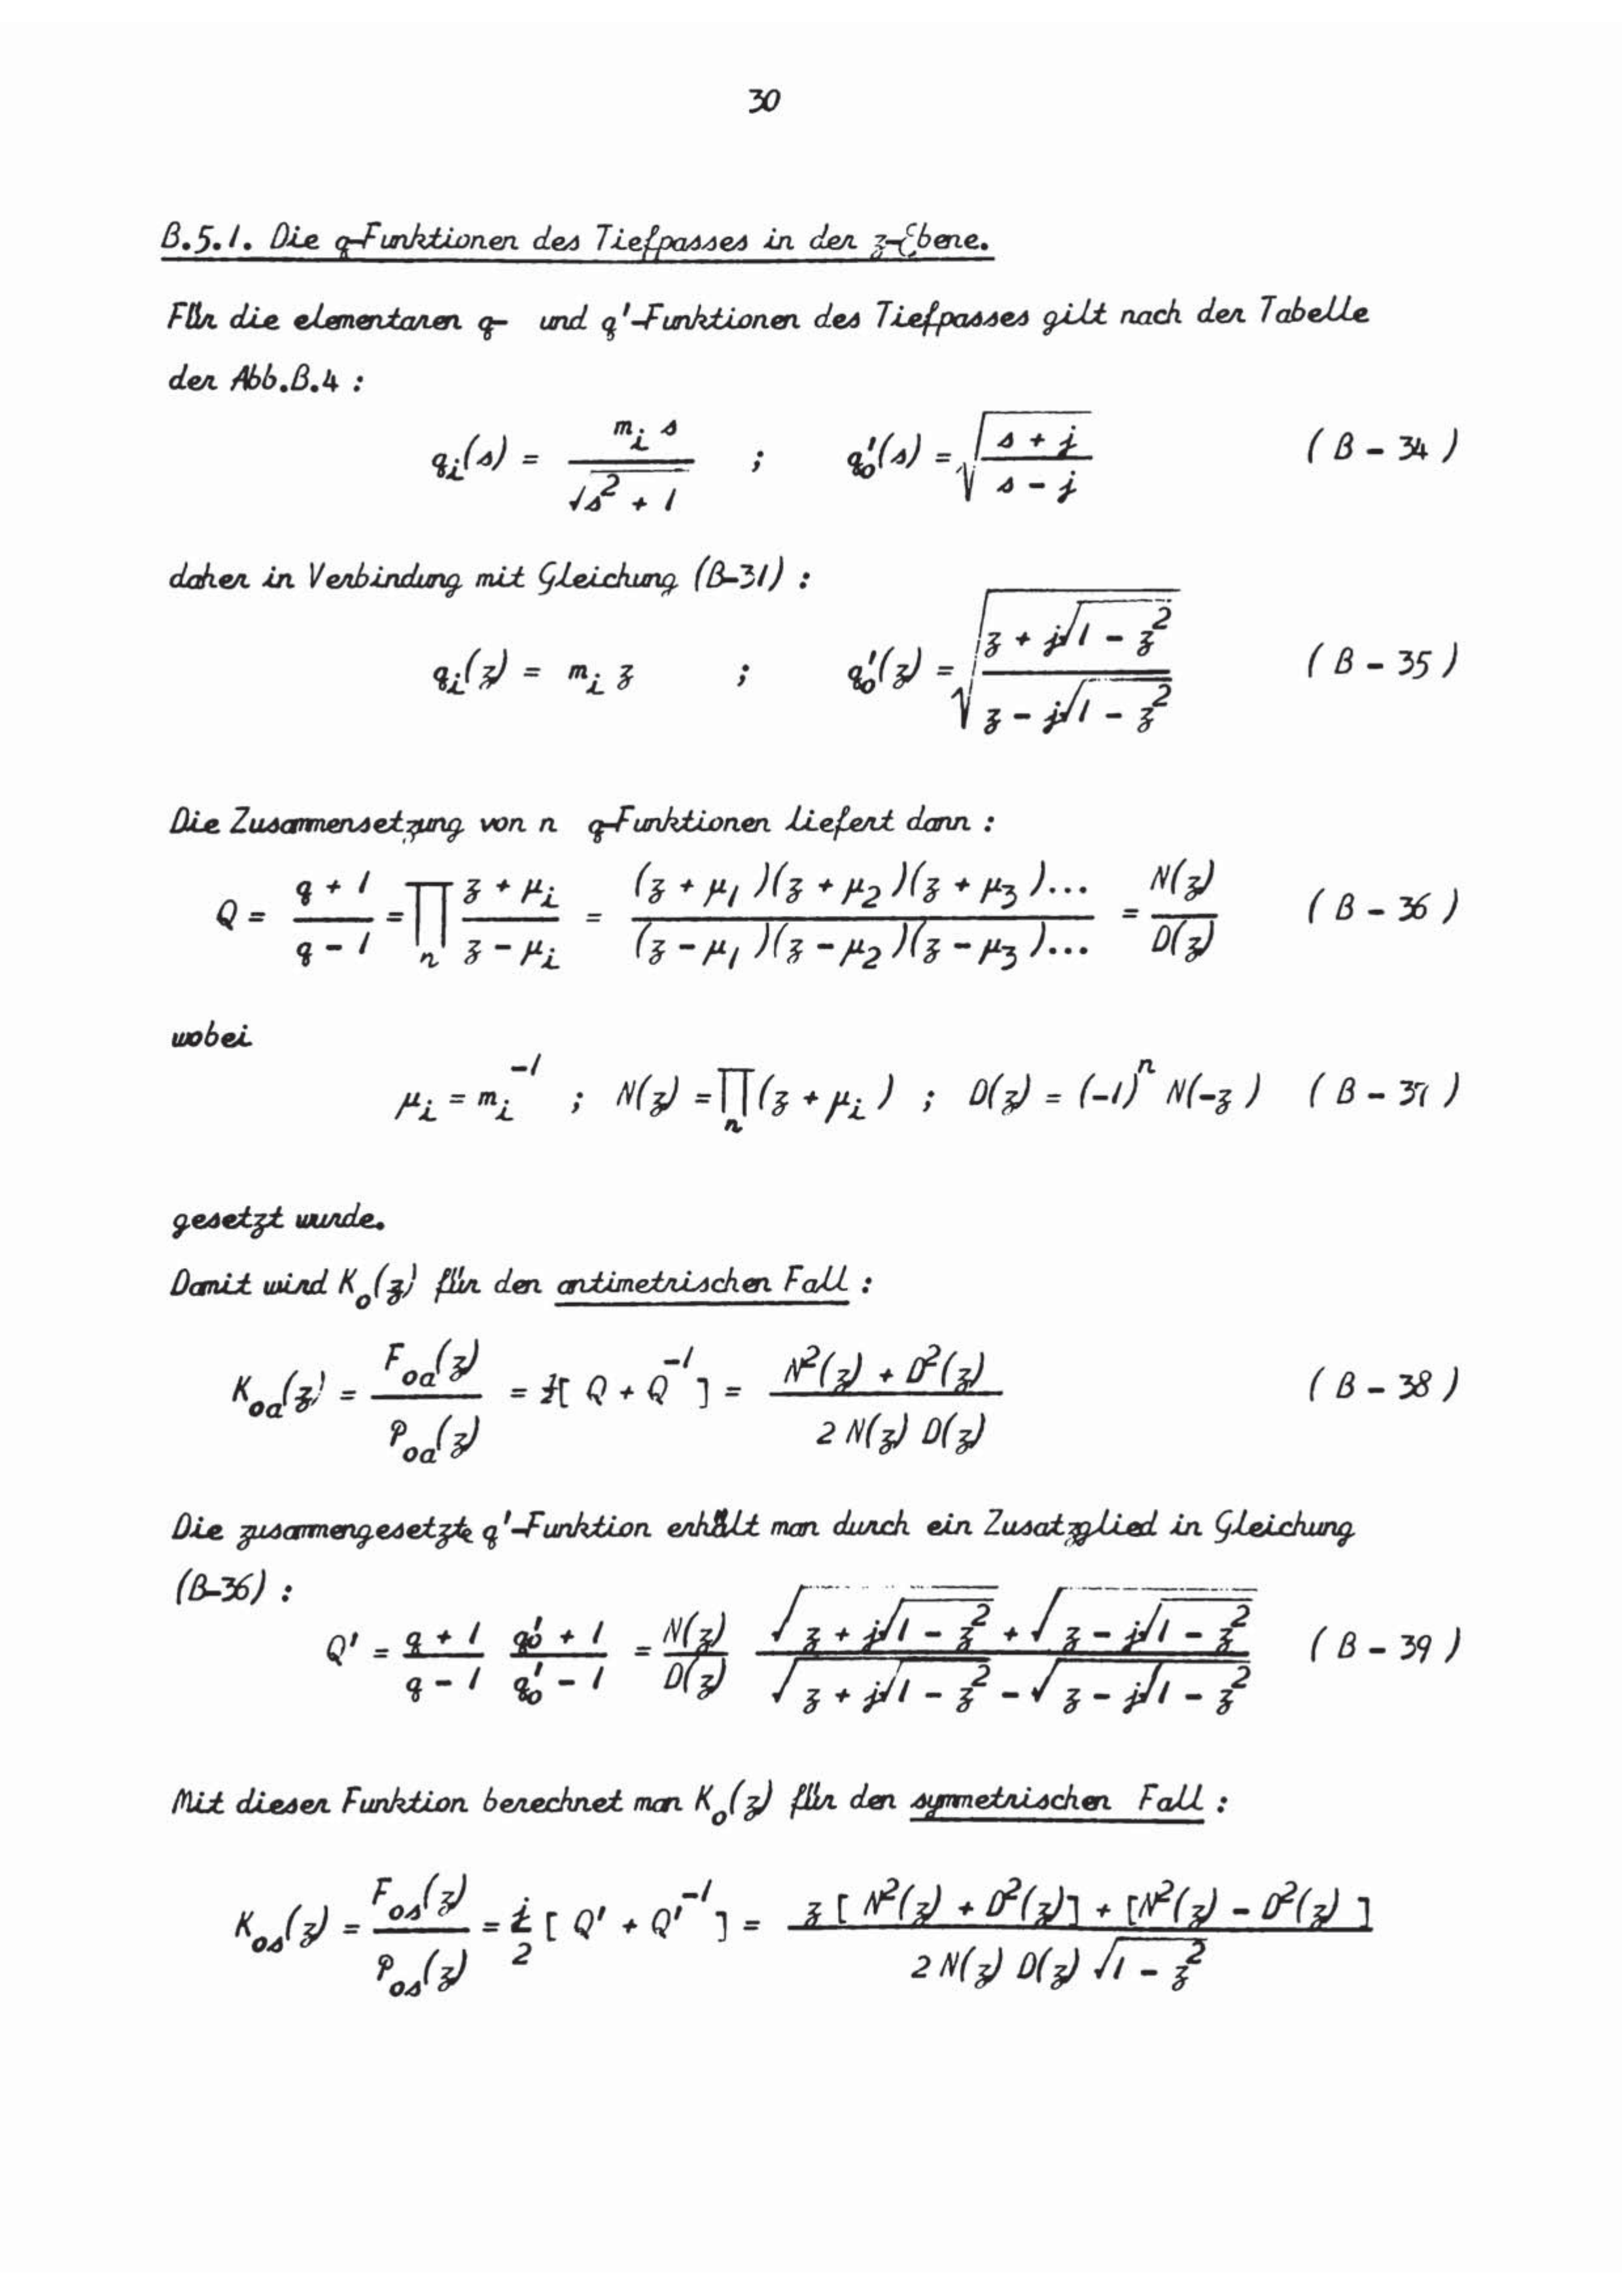 30
B.5.1. Die q-Funktionen des Tiefpasses in der z-Ebene.
Für die elementaren q- und q'-Funktionen des Tiefpasses gilt nach der Tabelle
der Abb.B.4 :
q_i(s) = \frac{m_i s}{\sqrt{s^2 + 1}} ; q'_o(s) = \sqrt{\frac{s + j}{s - j}} ( B - 34 )
daher in Verbindung mit Gleichung (B-31) :
q_i(z) = m_i z ; q'_o(z) = \sqrt{\frac{z + j\sqrt{1 - z^2}}{z - j\sqrt{1 - z^2}}} ( B - 35 )
Die Zusammensetzung von n q-Funktionen liefert dann :
Q = \frac{q + 1}{q - 1} = \prod_n \frac{z + μ_i}{z - μ_i} = \frac{(z + μ_1 )(z + μ_2 )(z + μ_3 )...}{(z - μ_1 )(z - μ_2 )(z - μ_3 )...} = \frac{N(z)}{D(z)} ( B - 36 )
wobei
μ_i = m_i^{-1} ; N(z) = \prod_n (z + μ_i ) ; D(z) = (-1)^n N(-z ) ( B - 37 )
gesetzt wurde.
Damit wird K_o(z) für den antimetrischen Fall :
K_{oa}(z) = \frac{F_{oa}(z)}{P_{oa}(z)} = ½[ Q + Q^{-1} ] = \frac{N^2(z) + D^2(z)}{2 N(z) D(z)} ( B - 38 )
Die zusammengesetzte q'-Funktion erhält man durch ein Zusatzglied in Gleichung
(B-36) :
Q' = \frac{q + 1}{q - 1} \frac{q'_o + 1}{q'_o - 1} = \frac{N(z)}{D(z)} \frac{\sqrt{z + j\sqrt{1 - z^2}} + \sqrt{z - j\sqrt{1 - z^2}}}{\sqrt{z + j\sqrt{1 - z^2}} - \sqrt{z - j\sqrt{1 - z^2}}} ( B - 39 )
Mit dieser Funktion berechnet man K_o(z) für den symmetrischen Fall :
K_{os}(z) = \frac{F_{os}(z)}{P_{os}(z)} = \frac{j}{2} [ Q' + Q'^{-1} ] = \frac{z [ N^2(z) + D^2(z)] + [N^2(z) - D^2(z) ]}{2 N(z) D(z) \sqrt{1 - z^2}}